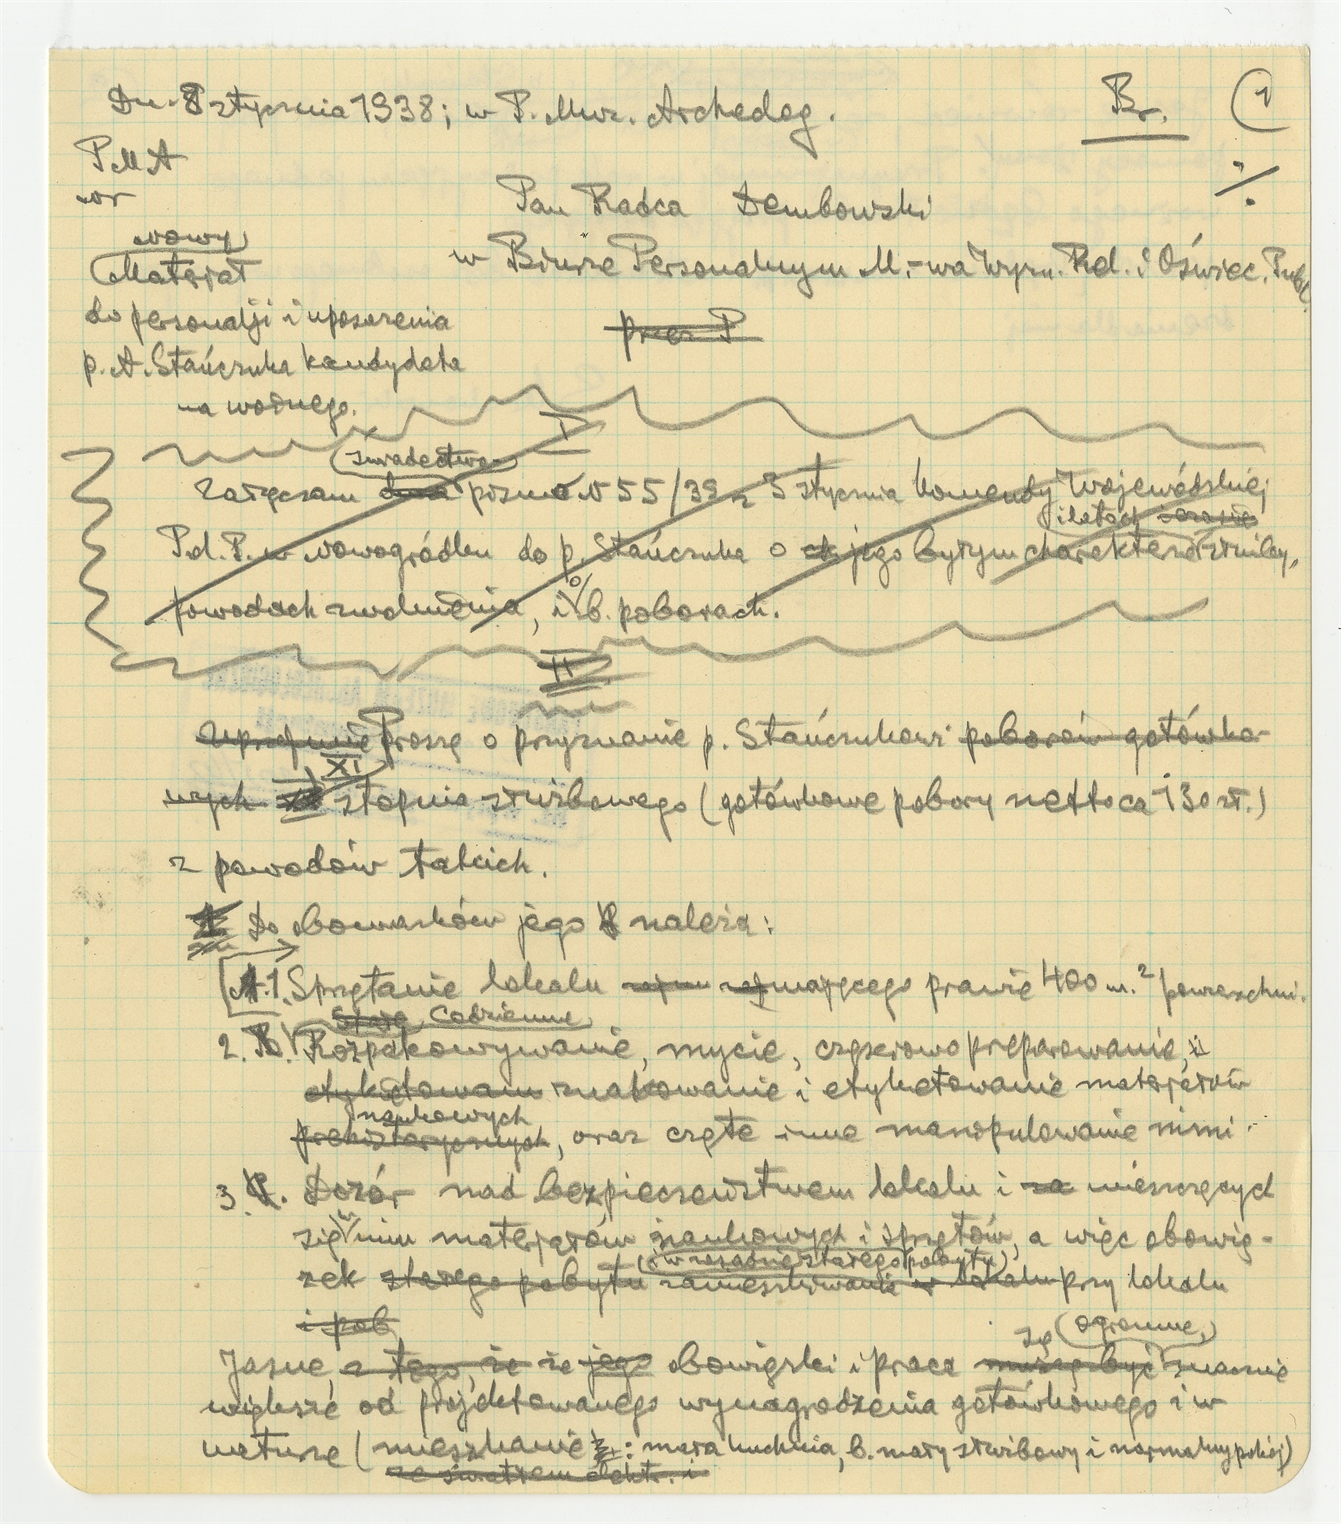 Dn. 8 stycznia 1938; w P. Muz. Archeolog.
Br.
1
P.M.A
wr
·/·
Pan Radca Dembowski
nowy
w Biurze Personalnym M.-wa Wyzn. Rel. i Oświec. Publ.
Materjał
do personalji i uposażenia
przez P
p. A. Stańczuka kandydata
na woźnego.
I
świadectwo
Załączam dwa pismo N 55/39 z 3 stycznia Komendy Wojewódzkiej
i latach
P.d.P. w Nowogródku do p. Stańczuka o jego byłym charakterze służby,
o
powodach zwolnienia, i b. poborach.
II
Uprzejmie Proszę o przyznanie p. Stańczukowi poborów gotówko-
XI
wych stopnia służbowego (gotówkowe pobory netto ca 130 zł.)
z powodów takich.
Do obowiązków jego należą:
A.1. Sprzątanie lokalu mającego prawie 400 m.² powierzchni.
Stałe Codzienne
2. B. Rozpakowywanie, mycie, częściowo preparowanie, i
etykietowanie znakowanie i etykietowanie materjałów
naukowych
prehistorycznych, oraz częste inne manipulowanie nimi.
3. C. Dozór nad bezpieczeństwem lokalu i mieszczących
się w nim materjałów naukowych i sprzętów, a więc obowią-
(w zasadzie stałego pobytu)
zek stałego pobytu zamieszkiwania w lokalu przy lokalu
i pob
są (ogromne,)
Jasne z tego, że że jego obowiązki i praca muszą być znacznie
większe od projektowanego wynagrodzenia gotówkowego i w
naturze (mieszkanie: mała kuchnia, b. mały służbowy i normalny pokój)
ze światłem elektr. i